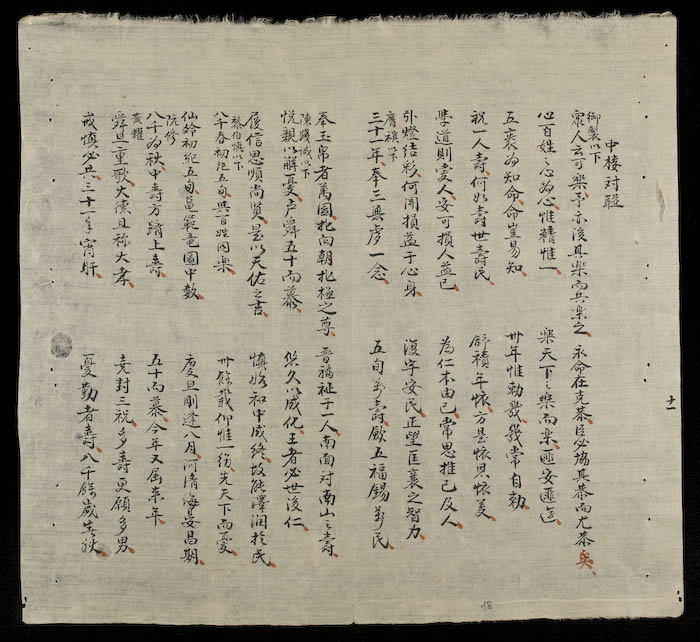 中楼対聯
御製以下
衆人云可樂予亦後其樂而共樂之 永命在克恭臣必協其恭而尤恭矣
心百姓之心為心惟精惟一 樂天下之樂而樂匪安匪逸
五袠為知命命豈易知 卅年惟勅幾幾常自勅
祝一人壽何如壽世壽民 舒積年懷方是懷思懷美
學道則愛人安可損人益己 為仁不由己常思推己及人
引燈結彩何関損益于心身 復字安民正望匡襄之智力
以下
三十一年奉三無虔一念 五旬萬壽飲五福錫萬民
奉玉帛者萬國北向朝北極之尊 晉福祉于一人南面対南山之壽
陳踐誠以下
悦親以解憂卢舜五十而慕 久以成化王者必世後仁
履信思順尚賢是以天佑之吉 慎始和中成終故能澤潤於民
黎伯慎以下
八千春初紀五旬與百姓同樂 卅餘載仰惟一後先天下而憂
仙齡初紀五旬亀範竜圖中数 慶旦剛逢八月河清海晏昌期
阮修
八千為秋中壽方躋上壽 五十而慕今年又屆来年
黃耀
舜旦重歌大德且称大孝 尭封三祝多壽更願多男
戒慎必共三十一年宵旰 憂勤者壽八千餘歳春秋
十一
18